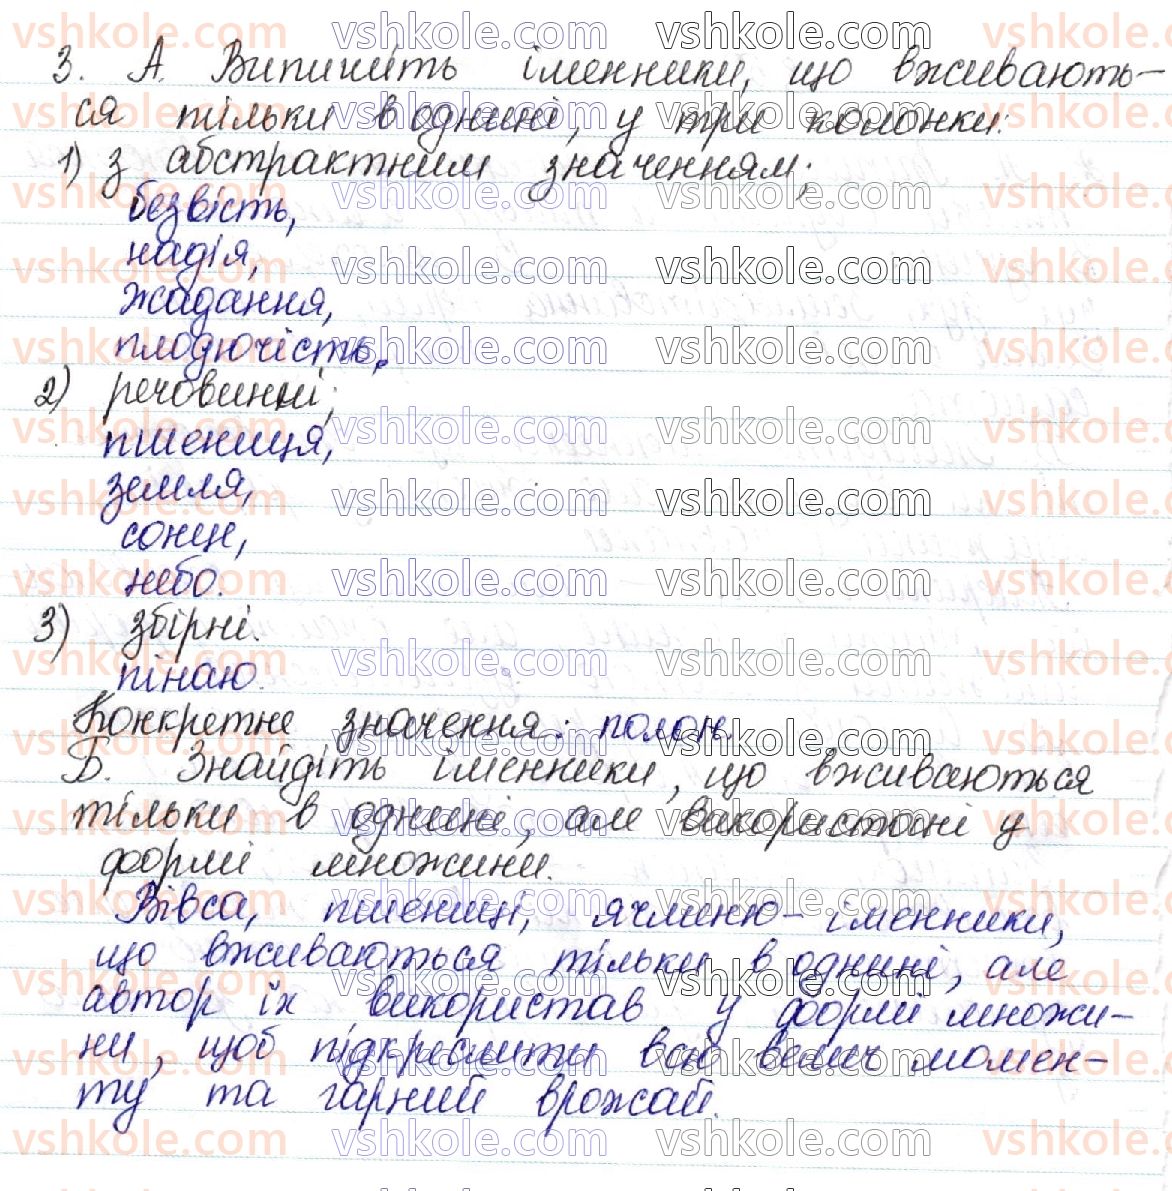 3. А. Випишіть іменники, що вживають-
ся тільки в однині, у три колонки:
1) з абстрактним значенням;
безвість,
надія,
жадання,
плодючість.
2) речовинні;
пшениця,
земля,
сонце,
небо.
3) збірні.
пінаю.
Конкретне значення: полон.
Б. Знайдіть іменники, що вживаються
тільки в однині, але використані у
формі множини.
Вівса, пшениці, ячменю - іменники,
що вживаються тільки в однині, але
автор їх використав у формі множи-
ни, щоб підкреслити всю велич момен-
ту та гарний врожай.